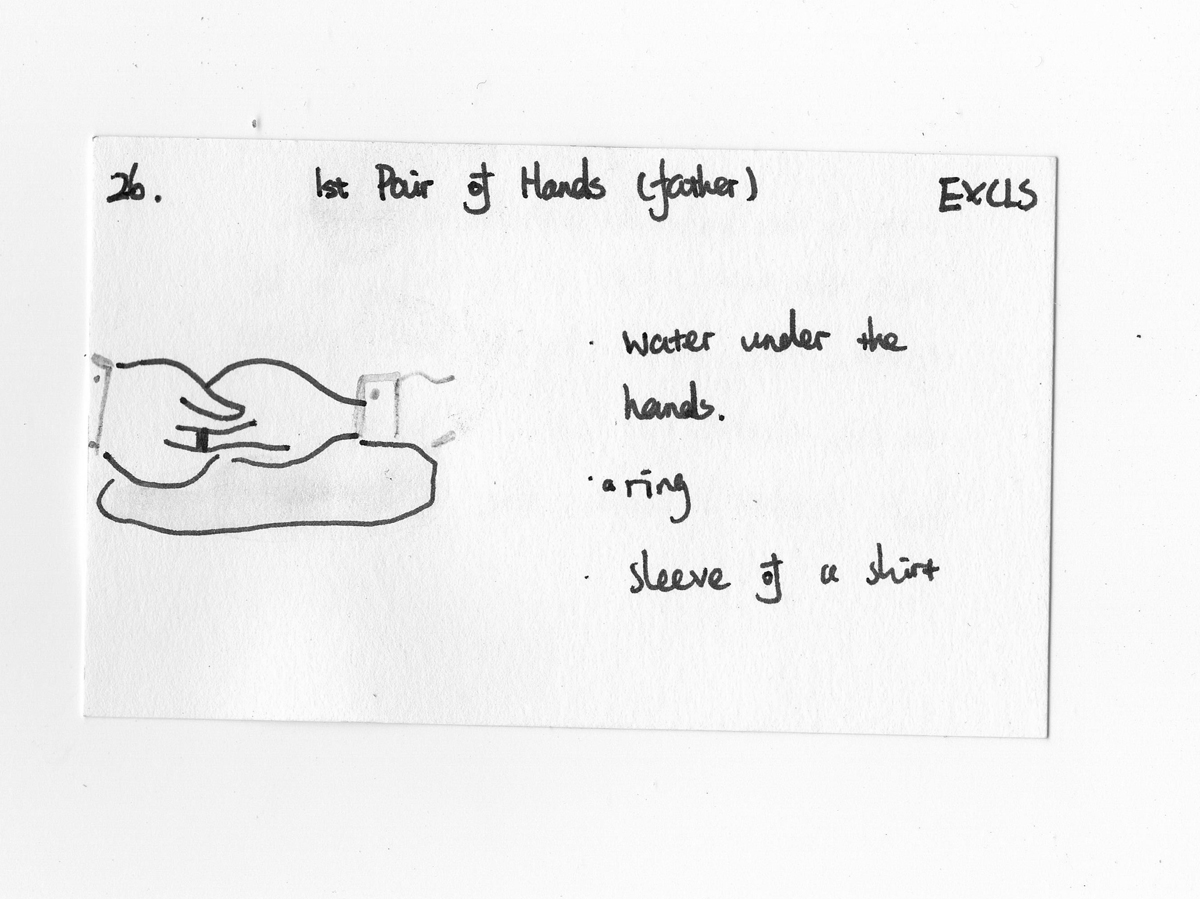 26. 1st Pair of Hands (father) EXCLS
· water under the
hands.
· a ring
· sleeve of a shirt